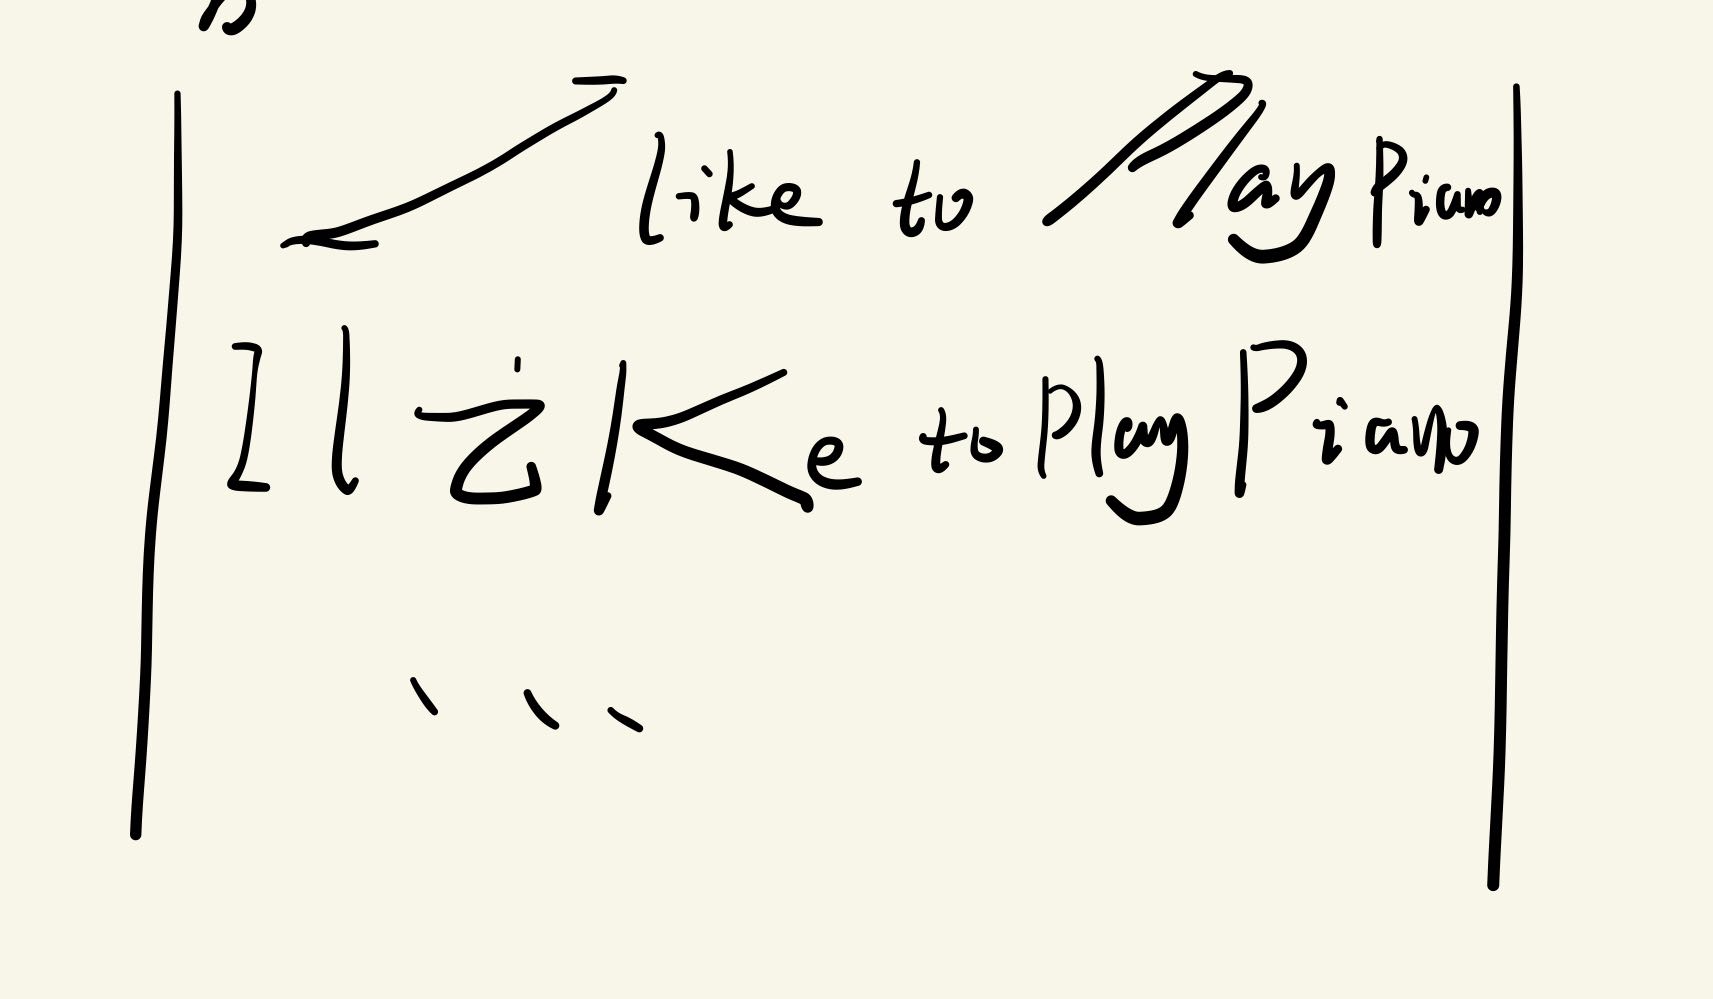 I like to Play Piano
I liKe to Play Piano
...